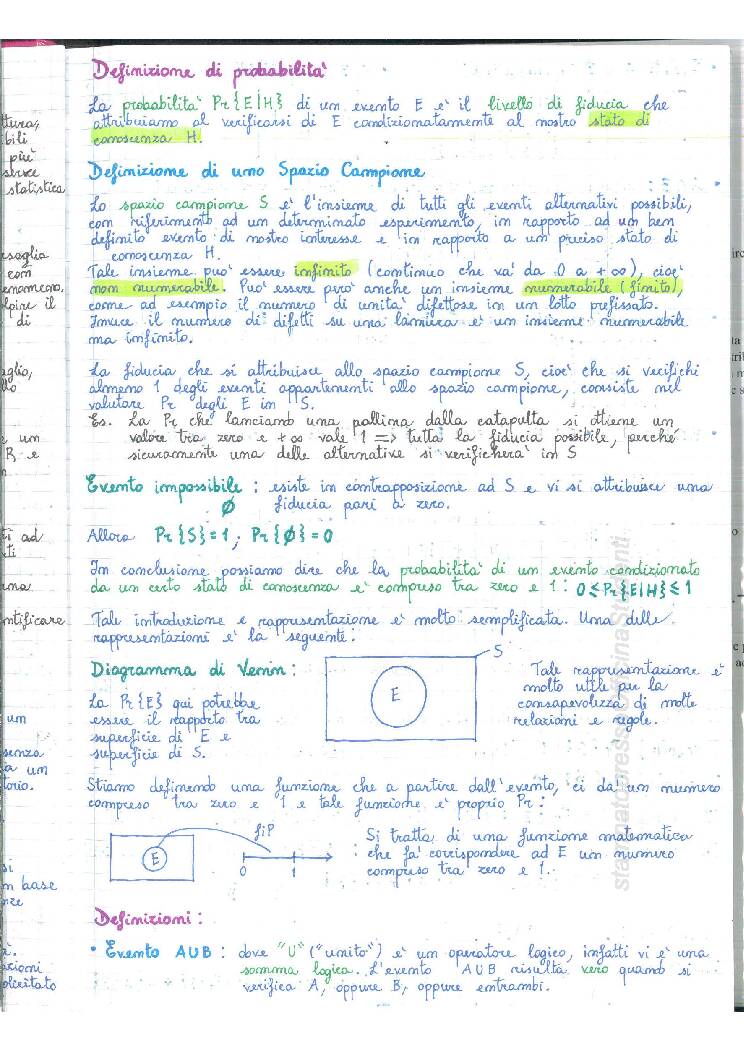 Definizione di probabilità
La probabilità Pr{E|H} di un evento E è il livello di fiducia che
attribuiamo al verificarsi di E condizionatamente al nostro stato di
conoscenza H.
Definizione di uno Spazio Campione
Lo spazio campione S è l'insieme di tutti gli eventi alternativi possibili,
con riferimento ad un determinato esperimento, in rapporto ad un ben
definito evento di nostro interesse e in rapporto a un preciso stato di
conoscenza H.
Tale insieme può essere infinito (continuo che va da 0 a +∞), cioè
non numerabile. Può essere però anche un insieme numerabile (finito),
come ad esempio il numero di unità difettose in un lotto prefissato.
Invece il numero di difetti su una lamiera è un insieme numerabile
ma infinito.
La fiducia che si attribuisce allo spazio campione S, cioè che si verifichi
almeno 1 degli eventi appartenenti allo spazio campione, consiste nel
valutare Pr degli E in S.
Es. La Pr che lanciamo una pallina dalla catapulta si ottiene un
valore tra zero e +∞ vale 1 => tutta la fiducia possibile, perché
sicuramente una delle alternative si verificherà in S
Evento impossibile : esiste in contrapposizione ad S e vi si attribuisce una
∅ fiducia pari a zero.
Allora Pr{S}=1 ; Pr{∅}=0
In conclusione possiamo dire che la probabilità di un evento condizionato
da un certo stato di conoscenza è compreso tra zero e 1 : 0≤Pr{E|H}≤1
Tale introduzione e rappresentazione è molto semplificata. Una delle
rappresentazioni è la seguente :
S
Diagramma di Venn :
E
La Pr{E} qui potrebbe
essere il rapporto tra
superficie di E e
superficie di S.
Tale rappresentazione è
molto utile per la
consapevolezza di molte
relazioni e regole.
Stiamo definendo una funzione che a partire dall'evento, ci dà un numero
compreso tra zero e 1 e tale funzione è proprio Pr :
E
0 1
Si tratta di una funzione matematica
che fà corrispondere ad E un numero
compreso tra zero e 1.
Definizioni :
• Evento AUB : dove "U" ("unito") è un operatore logico, infatti vi è una
somma logica. L'evento AUB risulta vero quando si
verifica A, oppure B, oppure entrambi.
statistica
soglia
con
enomeno.
di
un
R e
ad
una
ntificare
um
senza
un
base
olleitato
stampato presso Officina Studenti